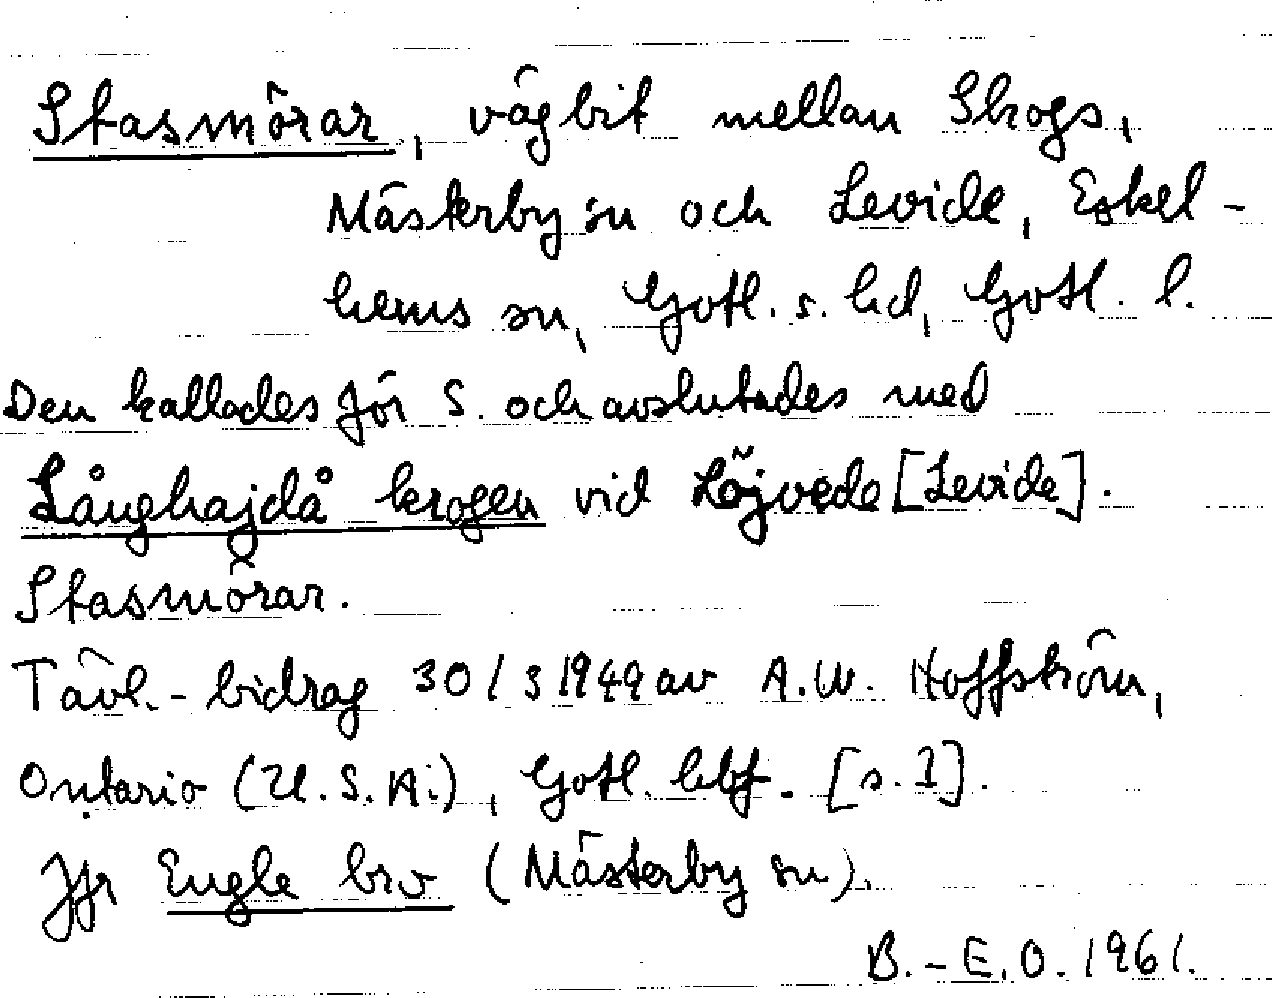 Stasmörar, vägbit mellan Skogs,
Mästerby sn och Levide, Eskel-
hems sn, Gotl. s. hd, Gotl. l.
Den kallades för S. och avslutades med
Långhajdå krogen vid Löjvede [Levide].
Stasmörar.
Tävl.-bidrag 30/3 1949 av A.W. Hoffström,
Ontario (U.S.A.), Gotl. hbf. [s. 1].
Jfr Engle bro (Mästerby sn).
B.-E.O. 1961.